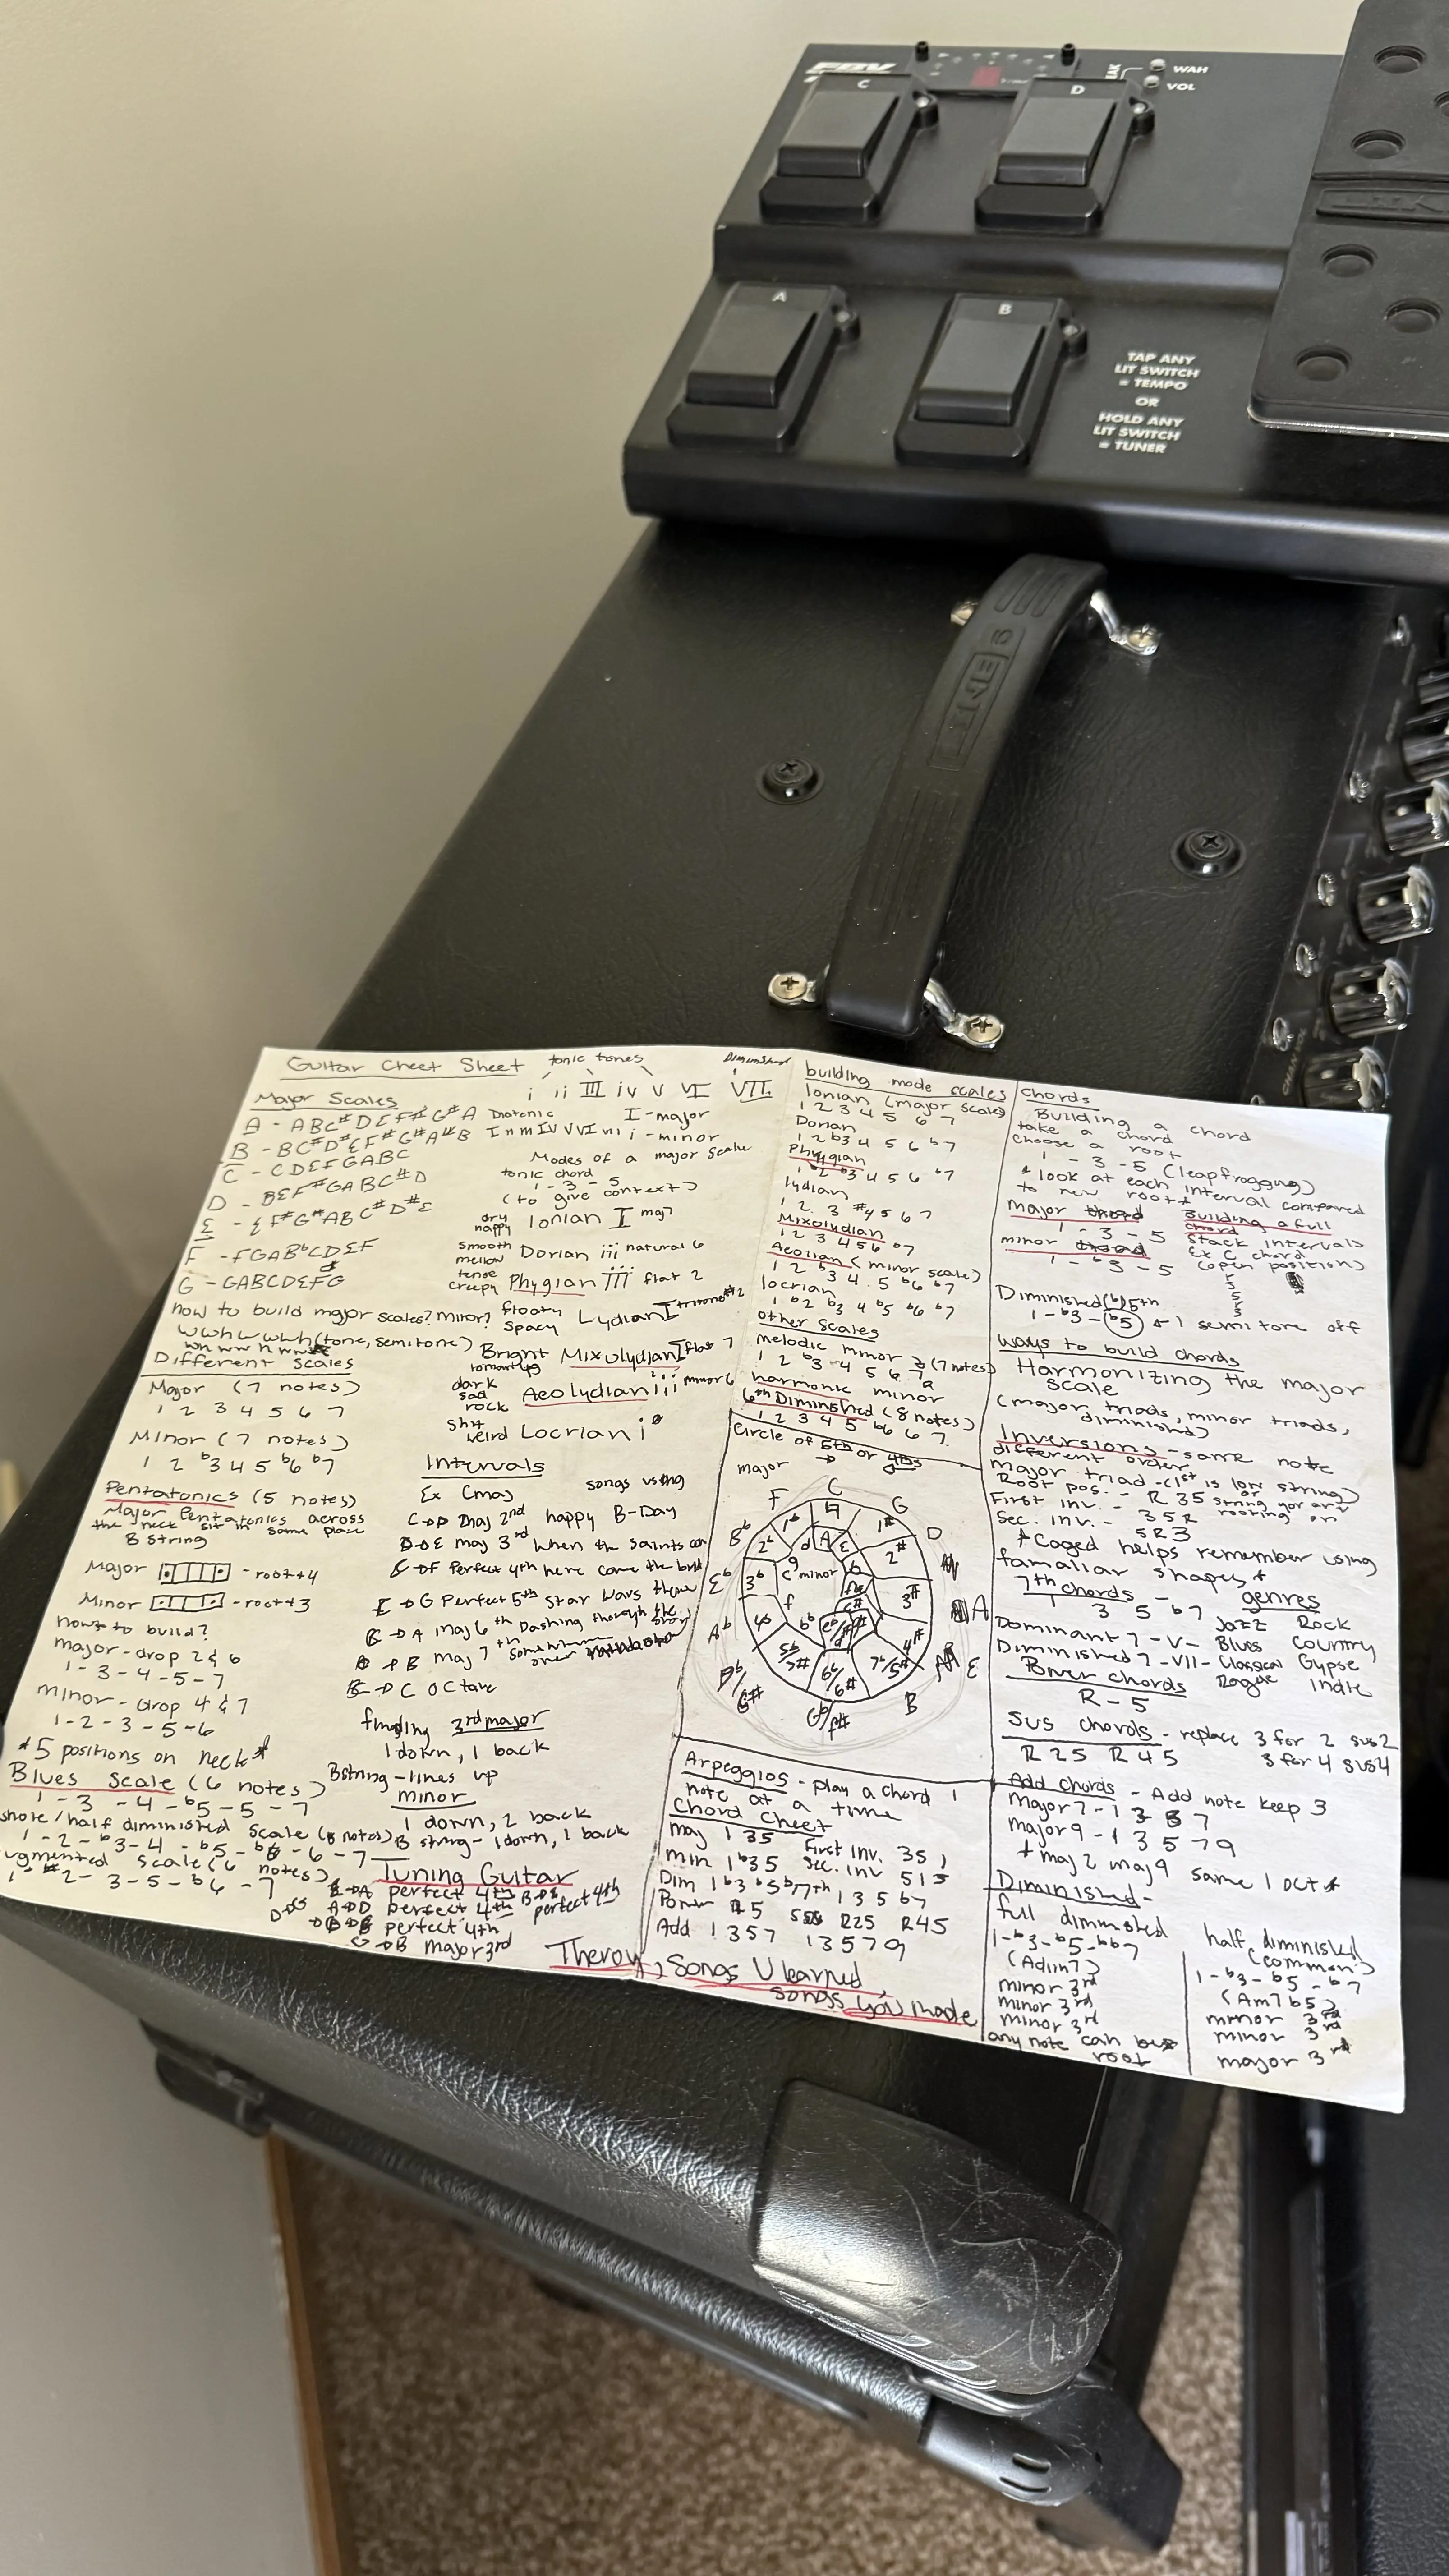 FBV
C
D
WAH
VOL
A
B
TAP ANY
LIT SWITCH
= TEMPO
OR
HOLD ANY
LIT SWITCH
= TUNER
LINE 6
Guitar Cheet Sheet
tonic tones
Diminished
i ii III iv v VI VII
Major Scales
A - ABC#DEF#G#A
B - BC#D#EF#G#A#B
C - CDEFGABC
D - DEF#GABC#D
E - EF#G#ABC#D#E
F - FGABbCDEF
G - GABCDEFG
Diatonic
I - major
i - minor
how to build major scales? minor?
WWHWWWH (tone, semitone)
Different Scales
Major (7 notes)
1 2 3 4 5 6 7
Minor (7 notes)
1 2 b3 4 5 b6 b7
Pentatonics (5 notes)
Major Pentatonics across
the neck sit in same place
B String
Major - root+4
Minor - root+3
how to build?
major - drop 2 & 6
1-3-4-5-7
minor - drop 4 & 7
1-2-3-5-6
*5 positions on neck*
Blues Scale (6 notes)
1-3-4-b5-5-7
/half diminished scale (8 notes)
1-2-b3-4-b5-b6-6-7
ugmented scale (6 notes)
1-#2-3-5-b6-7
Modes of a major scale
tonic chord
1-3-5
(to give context)
dry
happy
Ionian I maj
smooth
mellow
Dorian iii natural 6
tense
creepy
Phygian III flat 2
floaty
spacy
Lydian I
Bright
Mixolydian I flat 7
dark
sad
rock
Aeolydian iii minor 6
shit
weird
Locrian i°
Intervals
Ex Cmaj
songs using
C→D maj 2nd happy B-Day
D→E maj 3rd when the saints
C→F Perfect 4th here come the
E→G Perfect 5th Star Wars theme
C→A maj 6th Dashing thorogh the
B maj 7th
C→C octave
finding 3rd major
1 down, 1 back
B string - lines up
minor
1 down, 2 back
B string - 1 down, 1 back
Tuning Guitar
E→A perfect 4th
B→E perfect 4th
A→D perfect 4th
D→G perfect 4th
G→B major 3rd
Therory, Songs U learned,
songs you made
building mode scales
Ionian (major scale)
1 2 3 4 5 6 7
Dorian
1 2 b3 4 5 6 b7
Phygian
1 b2 b3 4 5 6 b7
lydian
1 2 3 #4 5 6 7
Mixolydian
1 2 3 4 5 6 b7
Aeolian (minor scale)
1 2 b3 4 5 b6 b7
locrian
1 b2 b3 4 b5 b6 b7
other scales
melodic minor (7 notes)
1 2 b3 4 5 6 7
harmonic minor
6th Diminshed (8 notes)
1 2 3 4 5 b6 6 7
Circle of 5th or 4ths
major
C
G
D
A
E
B
Gb/F#
Db/C#
Ab
Eb
Bb
F
minor
1#
2#
3#
4#
7b/5#
6b/6#
3b
2b
1b
Arpeggios - play a chord 1
note at a time
Chord Cheet
maj 1 3 5 First inv. 3 5 1
min 1 b3 5 Sec. inv 5 1 3
Dim 1 b3 b5 b7 7th 1 3 5 b7
Power R5 R25 R45
Add 1 3 5 7 1 3 5 7 9
chords
Building a chord
take a chord
choose a root
1-3-5 (leapfrogging)
* look at each interval compared
to new root *
major
1-3-5
minor
1-b3-5
Building a full
chord
stack intervals
Ex C chord
(open position)
Diminished (b) 5th
1-b3-b5 1 semitone off
ways to build chords
Harmonizing the major
scale
(major triads, minor triads,
diminished)
Inversions - same note
different order
major triad - (1st is low string)
Root pos. - R 3 5
First inv. - 3 5 R
Sec. inv. - 5 R 3
or
string your art
rooting on
*Caged helps remember using
famaliar shapes*
7th chords -
1 3 5 b7
genres
Dominant 7 - V - Jazz Rock
Blues Country
Diminished 7 - VII - Classical Gypse
Power chords
R-5
Ragae Indie
Sus chords - replace 3 for 2 sus2
R 2 5 R 4 5 3 for 4 sus4
Add chords - Add note keep 3
Major 7 - 1 3 5 7
major 9 - 1 3 5 7 9
* maj 2 maj 9 same 1 oct *
Diminished -
full diminshed
1-b3-b5-bb7
(Adim7)
minor 3rd
minor 3rd
minor 3rd
any note can be
root
half diminished
(common)
1-b3-b5-b7
(Am7b5)
minor 3rd
minor 3rd
major 3rd